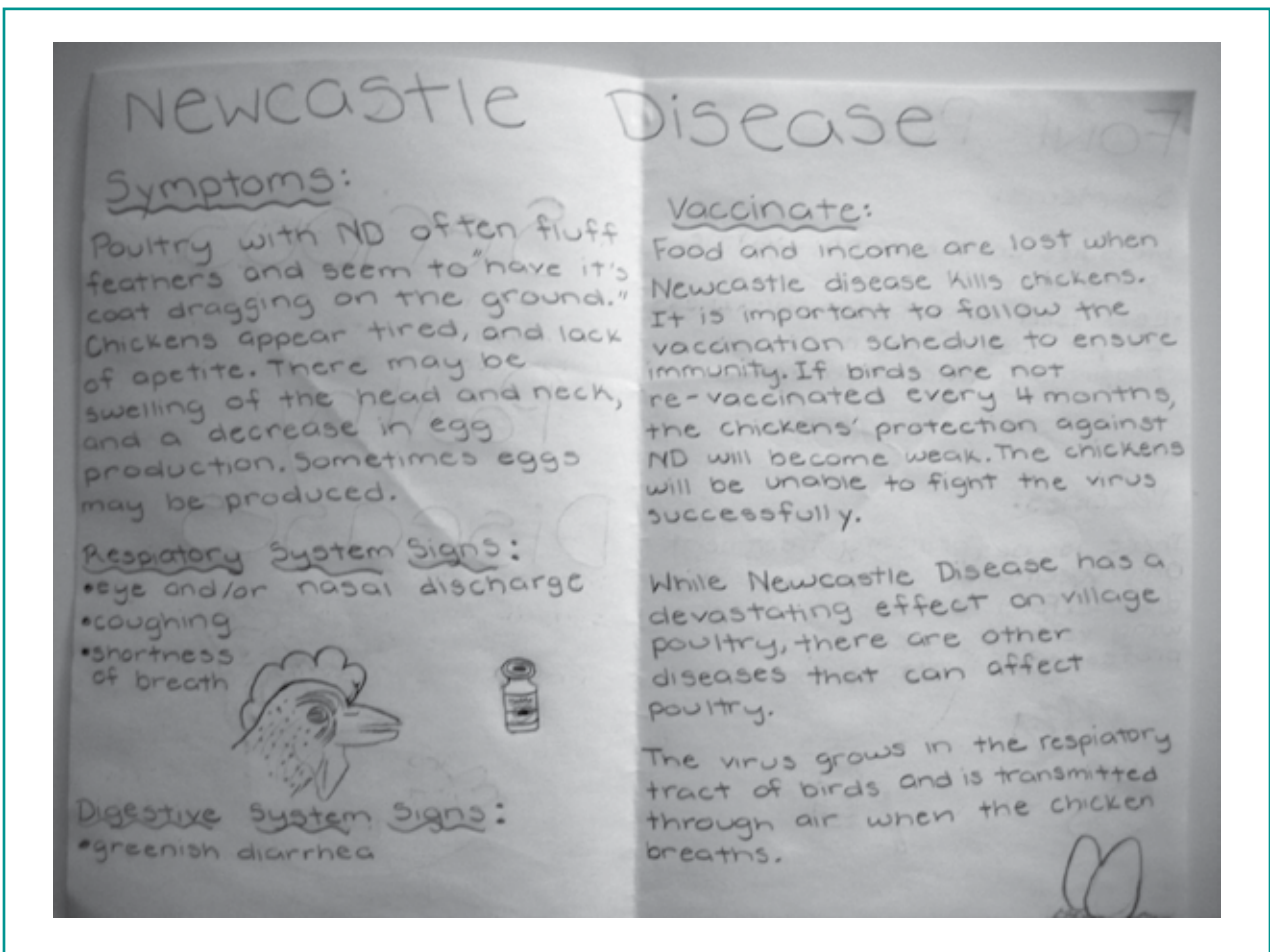 Newcastle Disease
Symptoms:
Poultry with ND often fluff
feathers and seem to "have it's
coat dragging on the ground."
Chickens appear tired, and lack
of apetite. There may be
swelling of the head and neck,
and a decrease in egg
production. Sometimes eggs
may be produced.
Respiatory System Signs:
•eye and/or nasal discharge
•coughing
•shortness
of breath
Digestive System Signs:
•greenish diarrhea
Vaccinate:
Food and income are lost when
Newcastle disease kills chickens.
It is important to follow the
vaccination schedule to ensure
immunity. If birds are not
re-vaccinated every 4 months,
the chickens' protection against
ND will become weak. The chickens
will be unable to fight the virus
successfully.
While Newcastle Disease has a
devastating effect on village
poultry, there are other
diseases that can affect
poultry.
The virus grows in the respiatory
tract of birds and is transmitted
through air when the chicken
breaths.